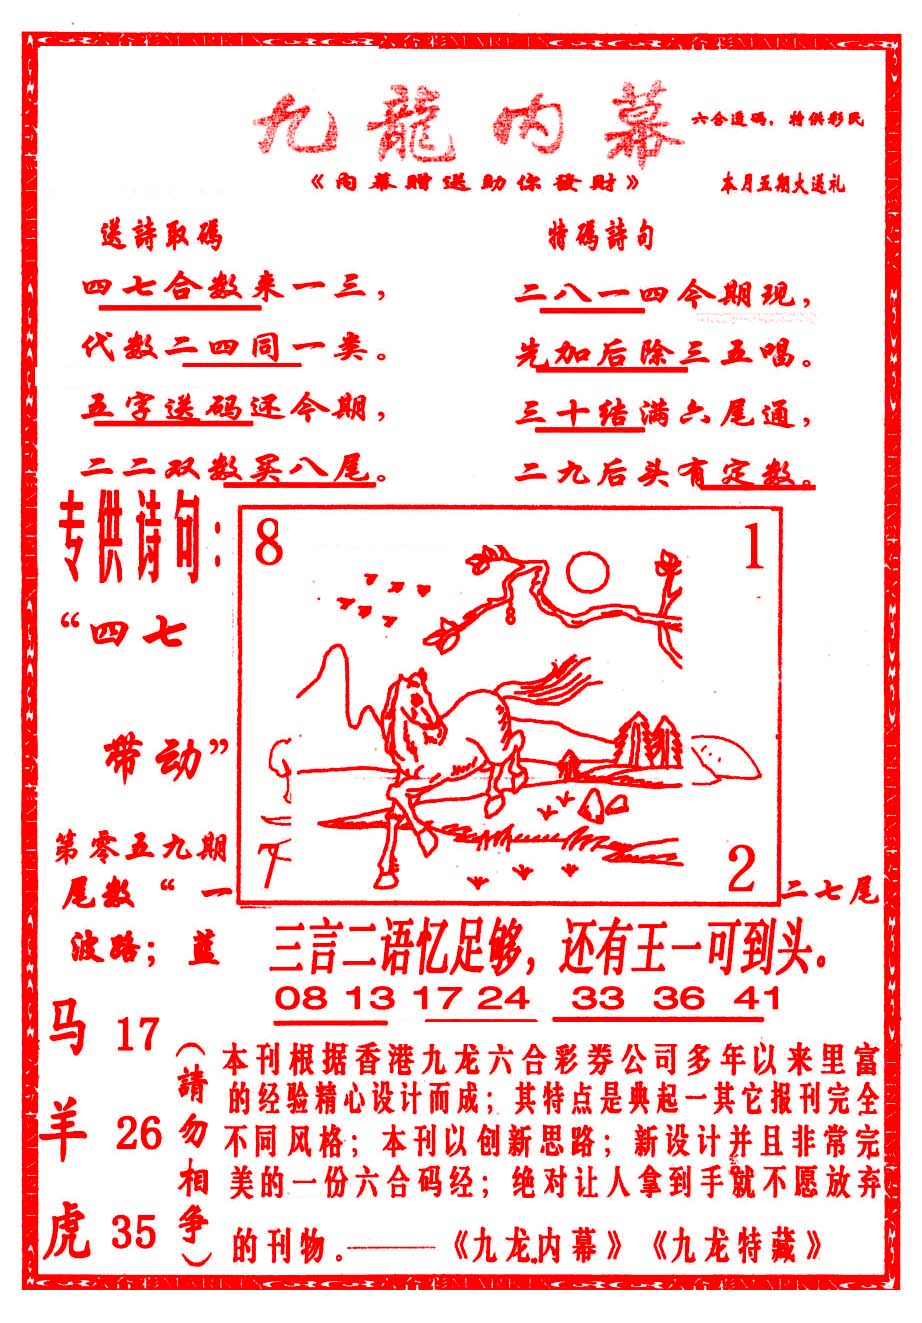 九龍内幕
六合透码，特供彩民
《内幕赠送助你發財》
本月五期大送礼
送詩取碼
四七合数来一三，
代数二四同一类。
五字送码还今期，
二二双数买八尾。
特碼詩句
二八一四今期现，
先加后除三五唱。
三十结满六尾通，
二九后头有定数。
专供诗句：
“四七
带动”
8
1
7
2
第零五九期
尾数“一
二七尾
波路；蓝
三言二语忆足够，还有王一可到头。
08 13 17 24 33 36 41
马 17
羊 26
虎 35
（請勿相争）
本刊根据香港九龙六合彩劵公司多年以来里富
的经验精心设计而成；其特点是典起一其它报刊完全
不同风格；本刊以创新思路；新设计并且非常完
美的一份六合码经；绝对让人拿到手就不愿放弃
的刊物。——《九龙内幕》《九龙特藏》